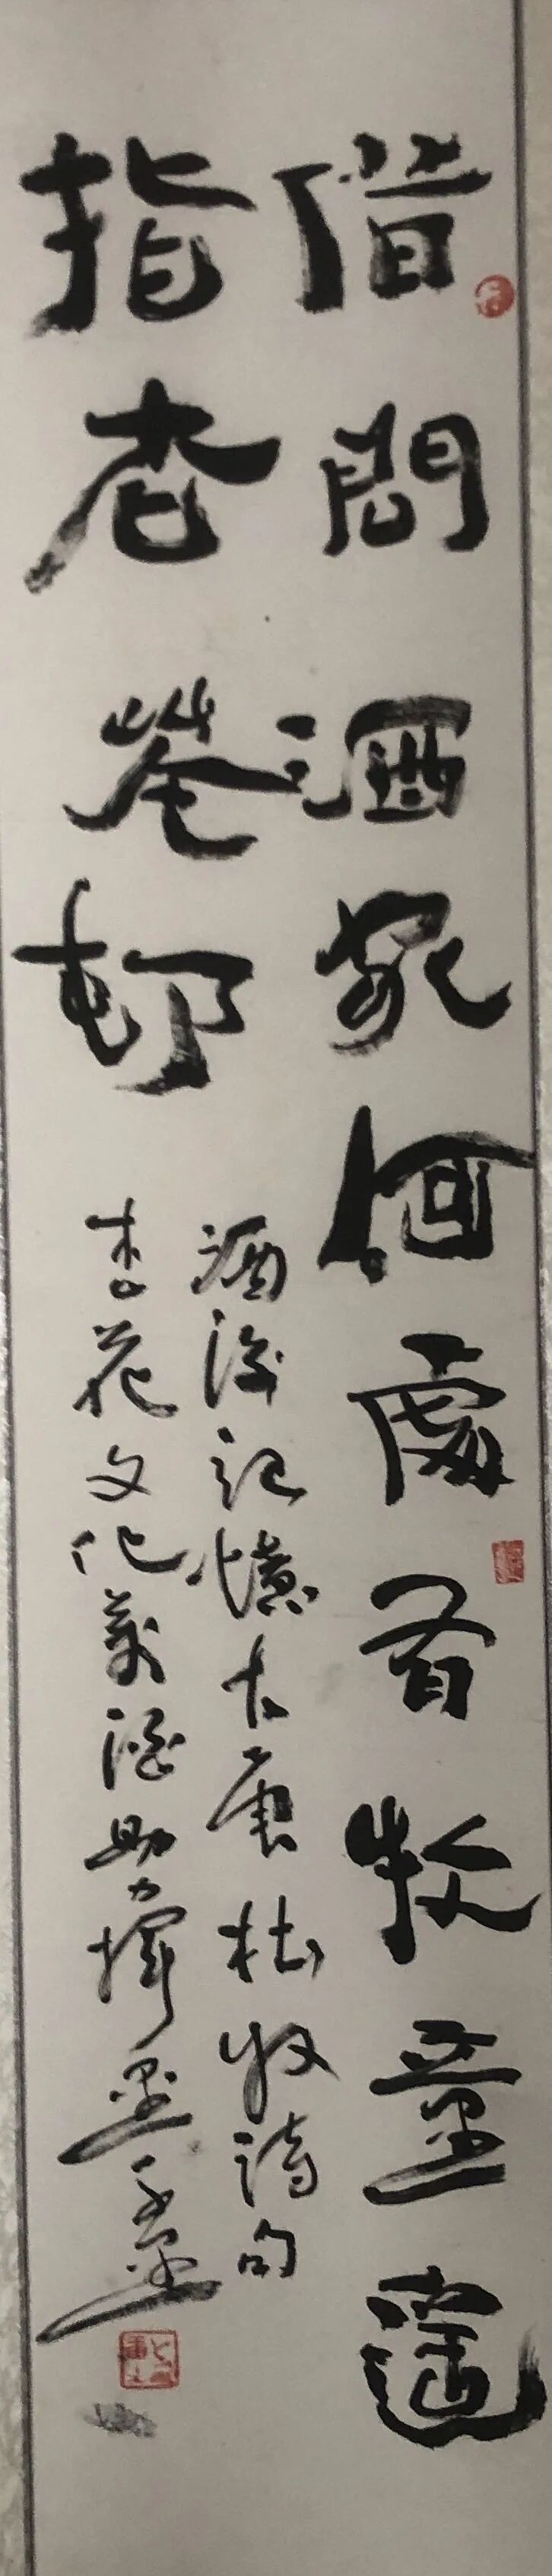 借問酒家何處有牧童遙
指杏花邨
酒後記憶大唐杜牧詩句
杏花文化藝酒助揮墨